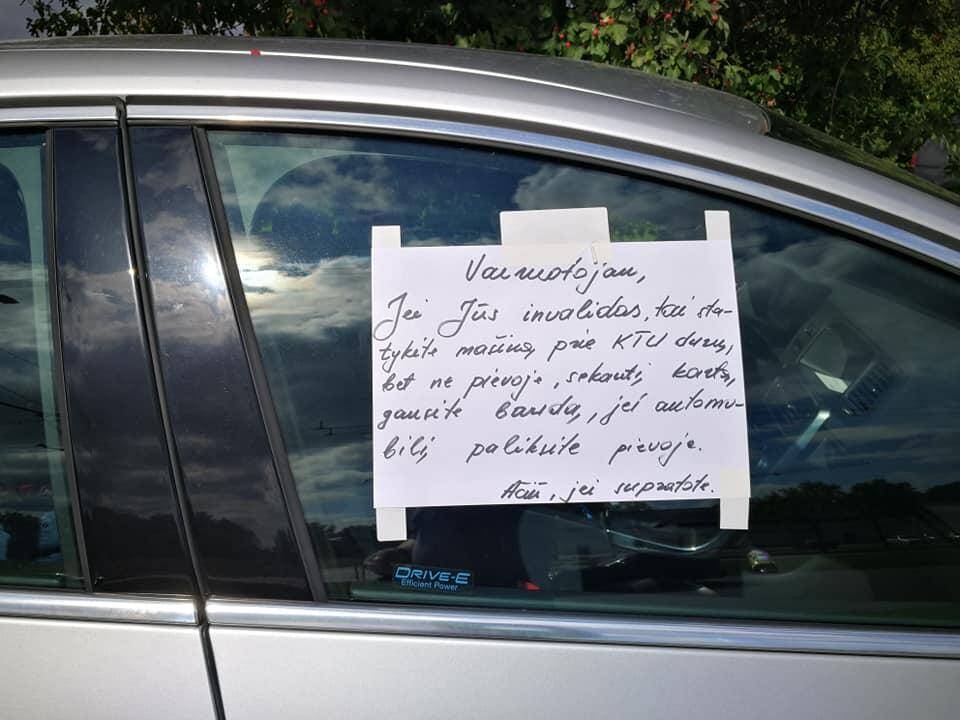 Vairuotojau,
Jei Jūs invalidas, tai sta-
tykite mašiną prie KTU durų,
bet ne pievoje, sekantį kartą,
gausite baudą, jei automo-
bilį paliksite pievoje.
Ačiū, jei supratote.
DRIVE-E
Efficient Power